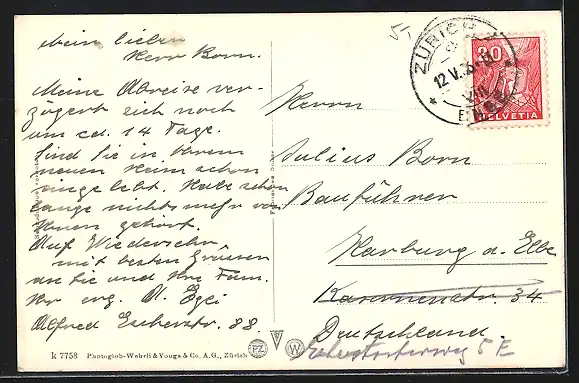 Mein lieber
Herr Born.
Meine Abreise ver-
zögert sich noch
um ca. 14 Tage.
Sind Sie in Ihrem
neuen Heim schon
eingelebt. Habe schon
lange nichts mehr von
Ihnen gehört.
Auf Wiedersehn
mit besten Grüssen
an Sie und Ihre Fam.
Ihr erg. A. Egei
Alfred Escherstr. 88.
Herrn
Julius Born
Bauführer
Harburg a. Elbe
Kasernenstr. 34
Deutschland.
5 E
ZÜRICH
12.V.36
VIII
30
HELVETIA
k 7758 Photoglob-Wehrli & Vouga & Co. A.G., Zürich
PZ
W